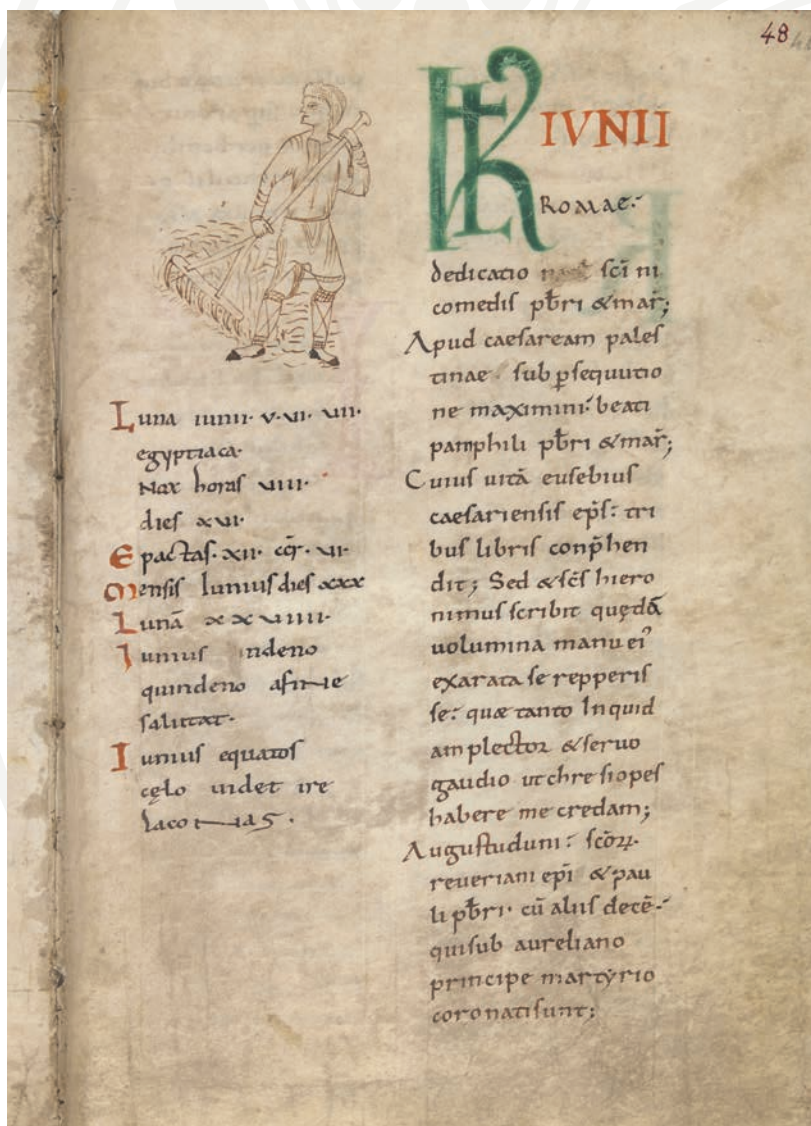 48
Luna iunii· v· vi· vii·
egyptiaca·
Nox horas viiii·
dies xvi·
Epactas· xii· ꝯr̄· vi·
Mensis Iunius dies xxx
Lunā xxviiii·
Iunius undeno
quindeno a fine
salutat·
Iunius equatos
cęlo uidet ire
laconas·
KL IVNII
ROMAE·
dedicatio sc̄i ni
comedis pb̄ri & mar̄;
Apud caesaream pales
tinae· sub ꝑsequutio
ne maximini· beati
pamphili pb̄ri & mar̄;
Cuius uitā eusebius
caesariensis ep̄s· tri
bus libris conp̄hen
dit; Sed & sc̄s hiero
nimus scribit quędā
uolumina manu ei᾽
exarata se repperis
se· quæ tanto inquid
amplector & seruo
gaudio ut chresi opes
habere me credam;
Augustuduni· sc̄oꝝ·
reueriani ep̄i & pau
li pb̄ri· cū aliis decē·
qui sub aureliano
principe martẏrio
coronati sunt;